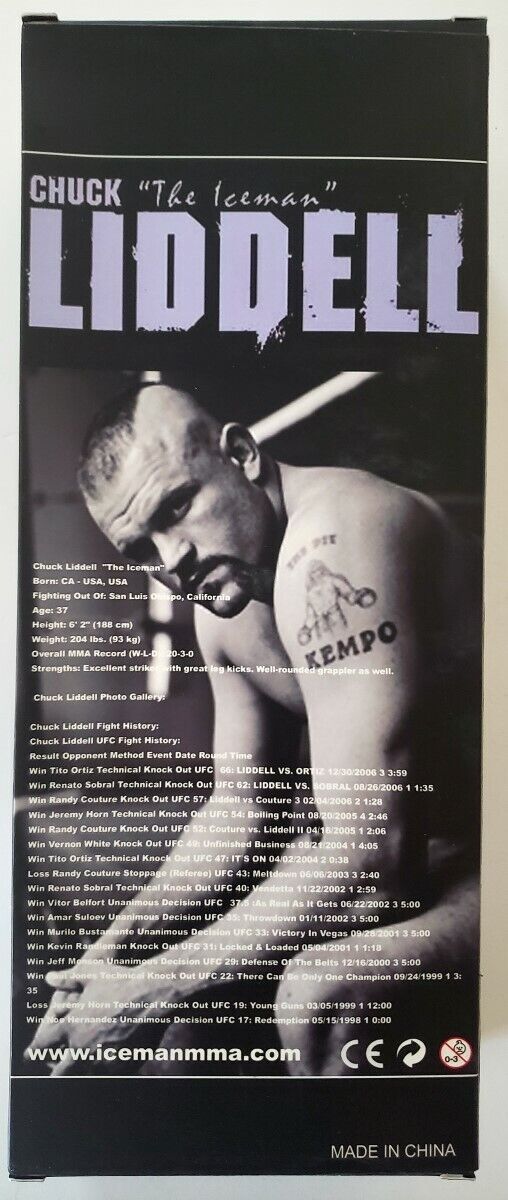 CHUCK "The Iceman"
LIDDELL
Chuck Liddell "The Iceman"
Born: CA - USA, USA
Fighting Out Of: San Luis Obispo, California
Age: 37
Height: 6' 2" (188 cm)
Weight: 204 lbs. (93 kg)
Overall MMA Record (W-L-D): 20-3-0
Strengths: Excellent striker with great leg kicks. Well-rounded grappler as well.
KEMPO
Chuck Liddell Photo Gallery:
Chuck Liddell Fight History:
Chuck Liddell UFC Fight History:
Result Opponent Method Event Date Round Time
Win Tito Ortiz Technical Knock Out UFC 66: LIDDELL VS. ORTIZ 12/30/2006 3 3:59
Win Renato Sobral Technical Knock Out UFC 62: LIDDELL VS. SOBRAL 08/26/2006 1 1:35
Win Randy Couture Knock Out UFC 57: Liddell vs Couture 3 02/04/2006 2 1:28
Win Jeremy Horn Technical Knock Out UFC 54: Boiling Point 08/20/2005 4 2:46
Win Randy Couture Knock Out UFC 52: Couture vs. Liddell II 04/16/2005 1 2:06
Win Vernon White Knock Out UFC 49: Unfinished Business 08/21/2004 1 4:05
Win Tito Ortiz Technical Knock Out UFC 47: IT'S ON 04/02/2004 2 0:38
Loss Randy Couture Stoppage (Referee) UFC 43: Meltdown 06/06/2003 3 2:40
Win Renato Sobral Technical Knock Out UFC 40: Vendetta 11/22/2002 1 2:59
Win Vitor Belfort Unanimous Decision UFC 37.5 :As Real As It Gets 06/22/2002 3 5:00
Win Amar Suloev Unanimous Decision UFC 35: Throwdown 01/11/2002 3 5:00
Win Murilo Bustamante Unanimous Decision UFC 33: Victory In Vegas 09/28/2001 3 5:00
Win Kevin Randleman Knock Out UFC 31: Locked & Loaded 05/04/2001 1 1:18
Win Jeff Monson Unanimous Decision UFC 29: Defense Of The Belts 12/16/2000 3 5:00
Win Paul Jones Technical Knock Out UFC 22: There Can Be Only One Champion 09/24/1999 1 3:
35
Loss Jeremy Horn Technical Knock Out UFC 19: Young Guns 03/05/1999 1 12:00
Win Noe Hernandez Unanimous Decision UFC 17: Redemption 05/15/1998 1 0:00
www.icemanmma.com CE 0-3
MADE IN CHINA